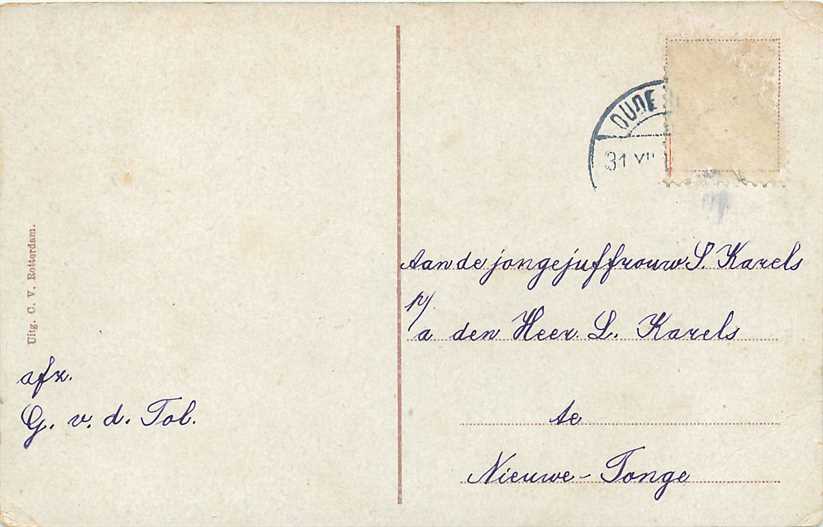 Uitg. C. V. Rotterdam.
afz.
G. v. d. Tol.
OUDE
31 XII
Aan de jongejuffrouw S. Karels
p/a den Heer. L. Karels
te
Nieuwe-Tonge